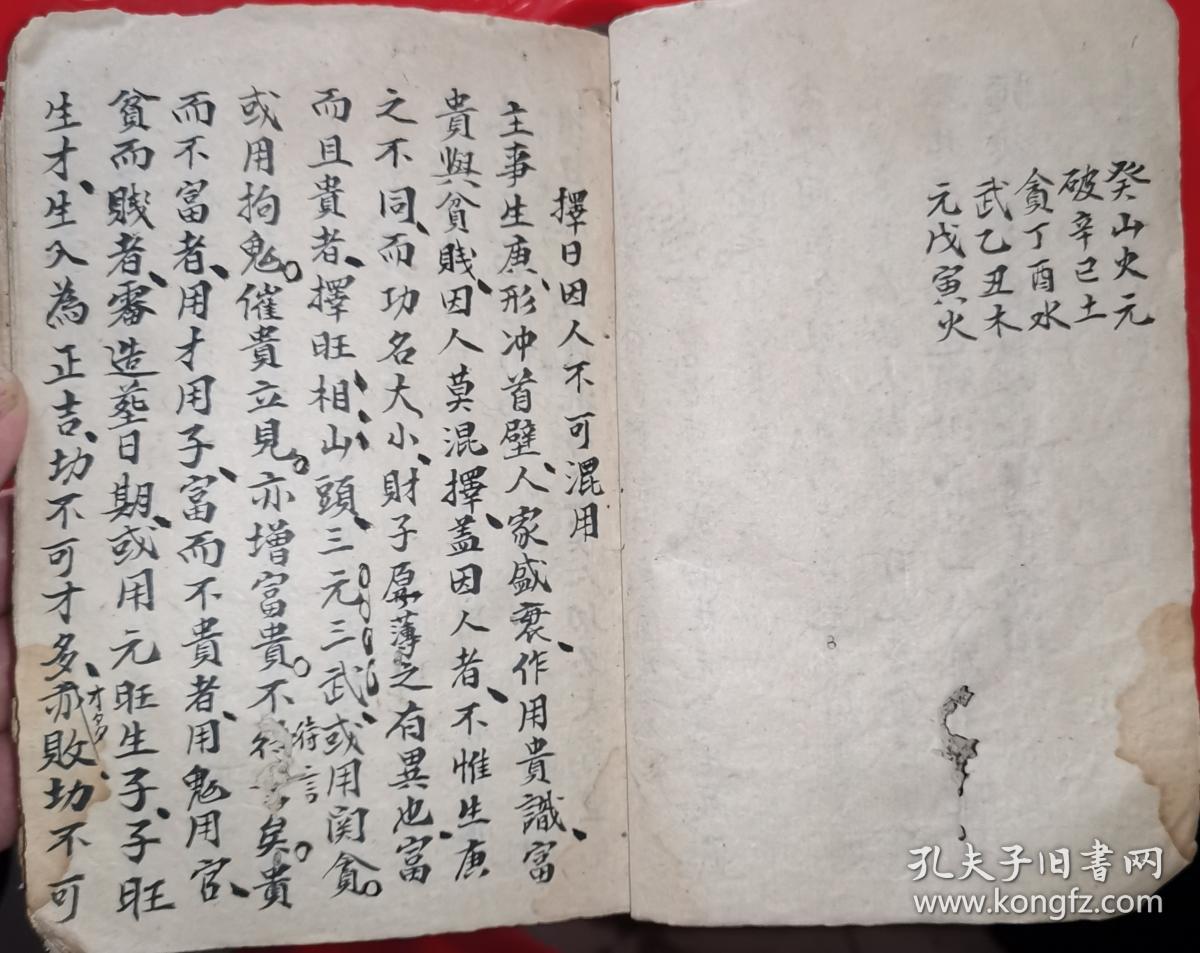 癸山火元
破辛巳土
貪丁酉水
武乙丑木
元戊寅火
擇日因人不可混用
主事生庚、形冲首壁、人家盛衰、作用貴識、富
貴與貧賤、因人莫混擇、盖因人者、不惟生庚
之不同、而功名大小、財子厚薄之有異也、富
而且貴者、擇旺相山頭、三元三武、或用関貪。
或用拘鬼。催貴立見。亦增富貴。不待言矣。貴
而不富者、用才用子、富而不貴者、用鬼用官、
貧而賤者、畨造塟日期、或用元旺生子、子旺
生才、生入為正吉、切不可才多、才多亦敗、切不可
孔夫子旧书网
www.kongfz.com